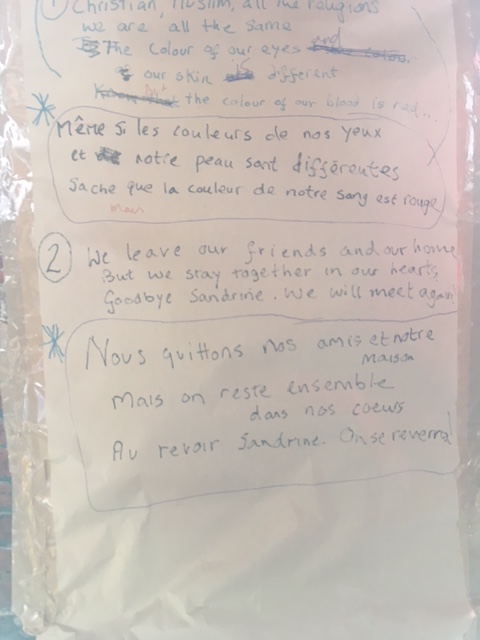 ① Christian, Muslim, all the religions
we are all the same
The colour of our eyes and
our skin is different
but the colour of our blood is red...
Même si les couleurs de nos yeux
et notre peau sont différentes
Sache que la couleur de notre sang est rouge
mais
② We leave our friends and our home
But we stay together in our hearts
Goodbye Sandrine. We will meet again
Nous quittons nos amis et notre
maison
Mais on reste ensemble
dans nos coeurs
Au revoir Sandrine. On se reverra